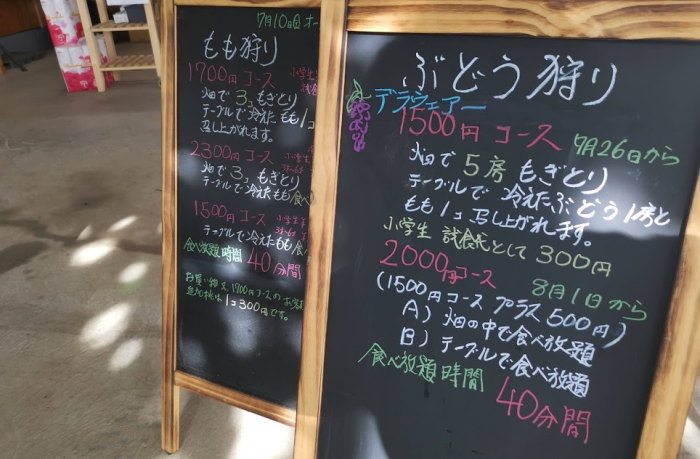 7月10日(金)オー
もも狩り
1700円コース 小学生
試食
畑で3コもぎとり
テーブルで冷えたもも1コ
召し上がれます。
2300円コース 小学生
3才~6才
畑で3コもぎとり
テーブルで冷えたもも食べ
1500円コース 小学生
3才~6才
テーブルで冷えたもも食
食べ放題時間 40分間
1700円コースのお客
追加桃は1コ300円です。
ぶどう狩り
デラウェアー
1500円コース 7月26日から
畑で5房もぎとり
テーブルで冷えたぶどう1房と
もも1コ召し上がれます。
小学生 試食代として300円
2000円コース 8月1日から
(1500円コースプラス500円)
A) 畑の中で食べ放題
B) テーブルで食べ放題
食べ放題時間
40分間